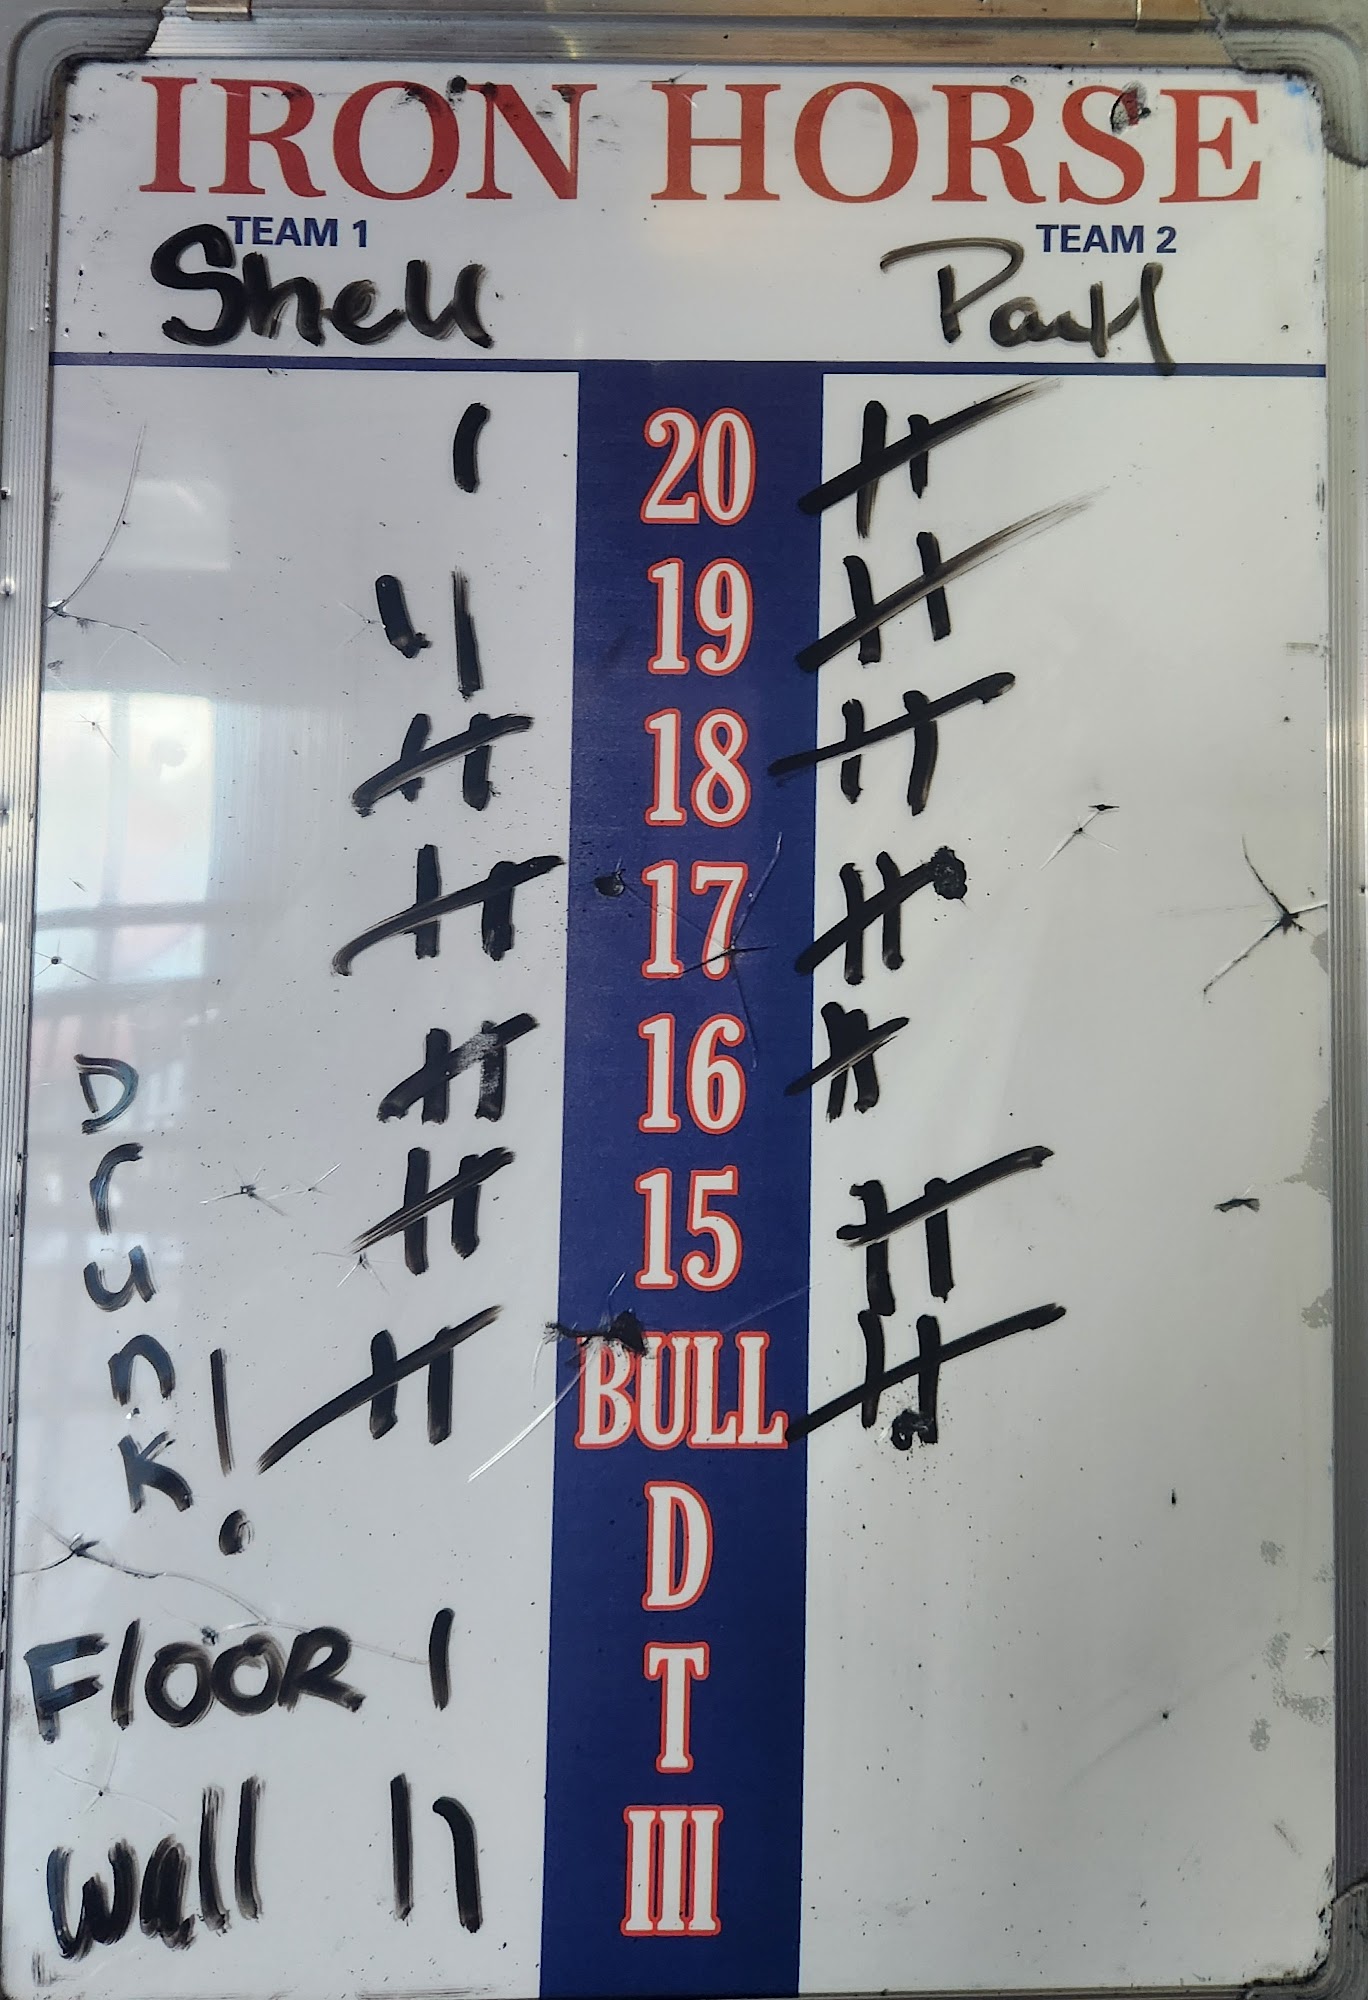 IRON HORSE
TEAM 1 TEAM 2
Shell Paul
20
19
18
17
16
15
BULL
D
T
III
Drunk!
FLOOR I
Wall II